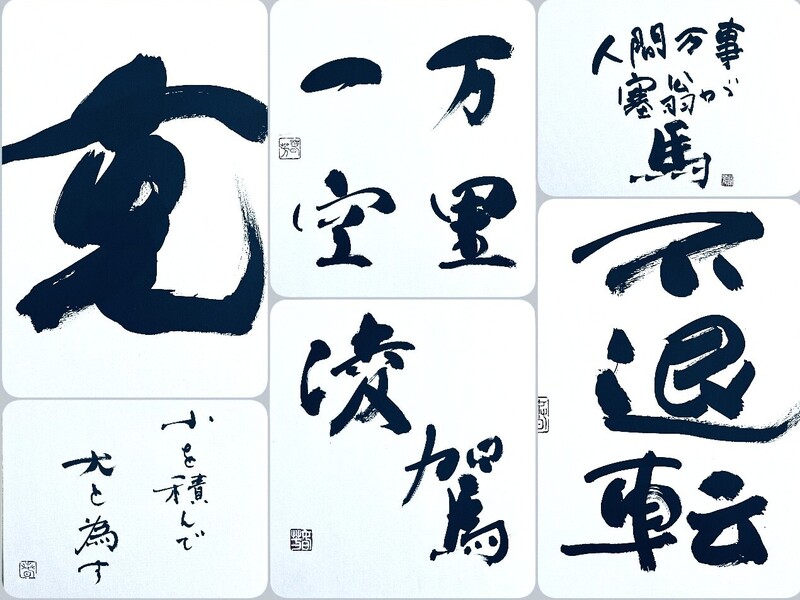 克
万里
一空
人間万事
塞翁が
馬
小を積んで
大と為す
凌駕
不退転